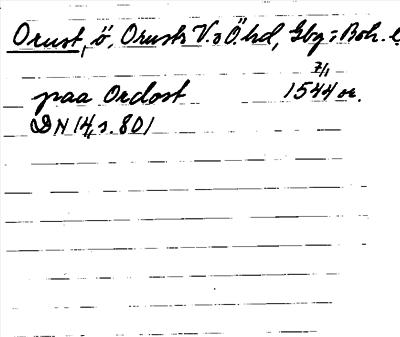 Orust, ö, Orusts V. o Ö. hd, Gbg o Boh. l
7/1
paa Ordost 1544 or.
DN 14, s. 801